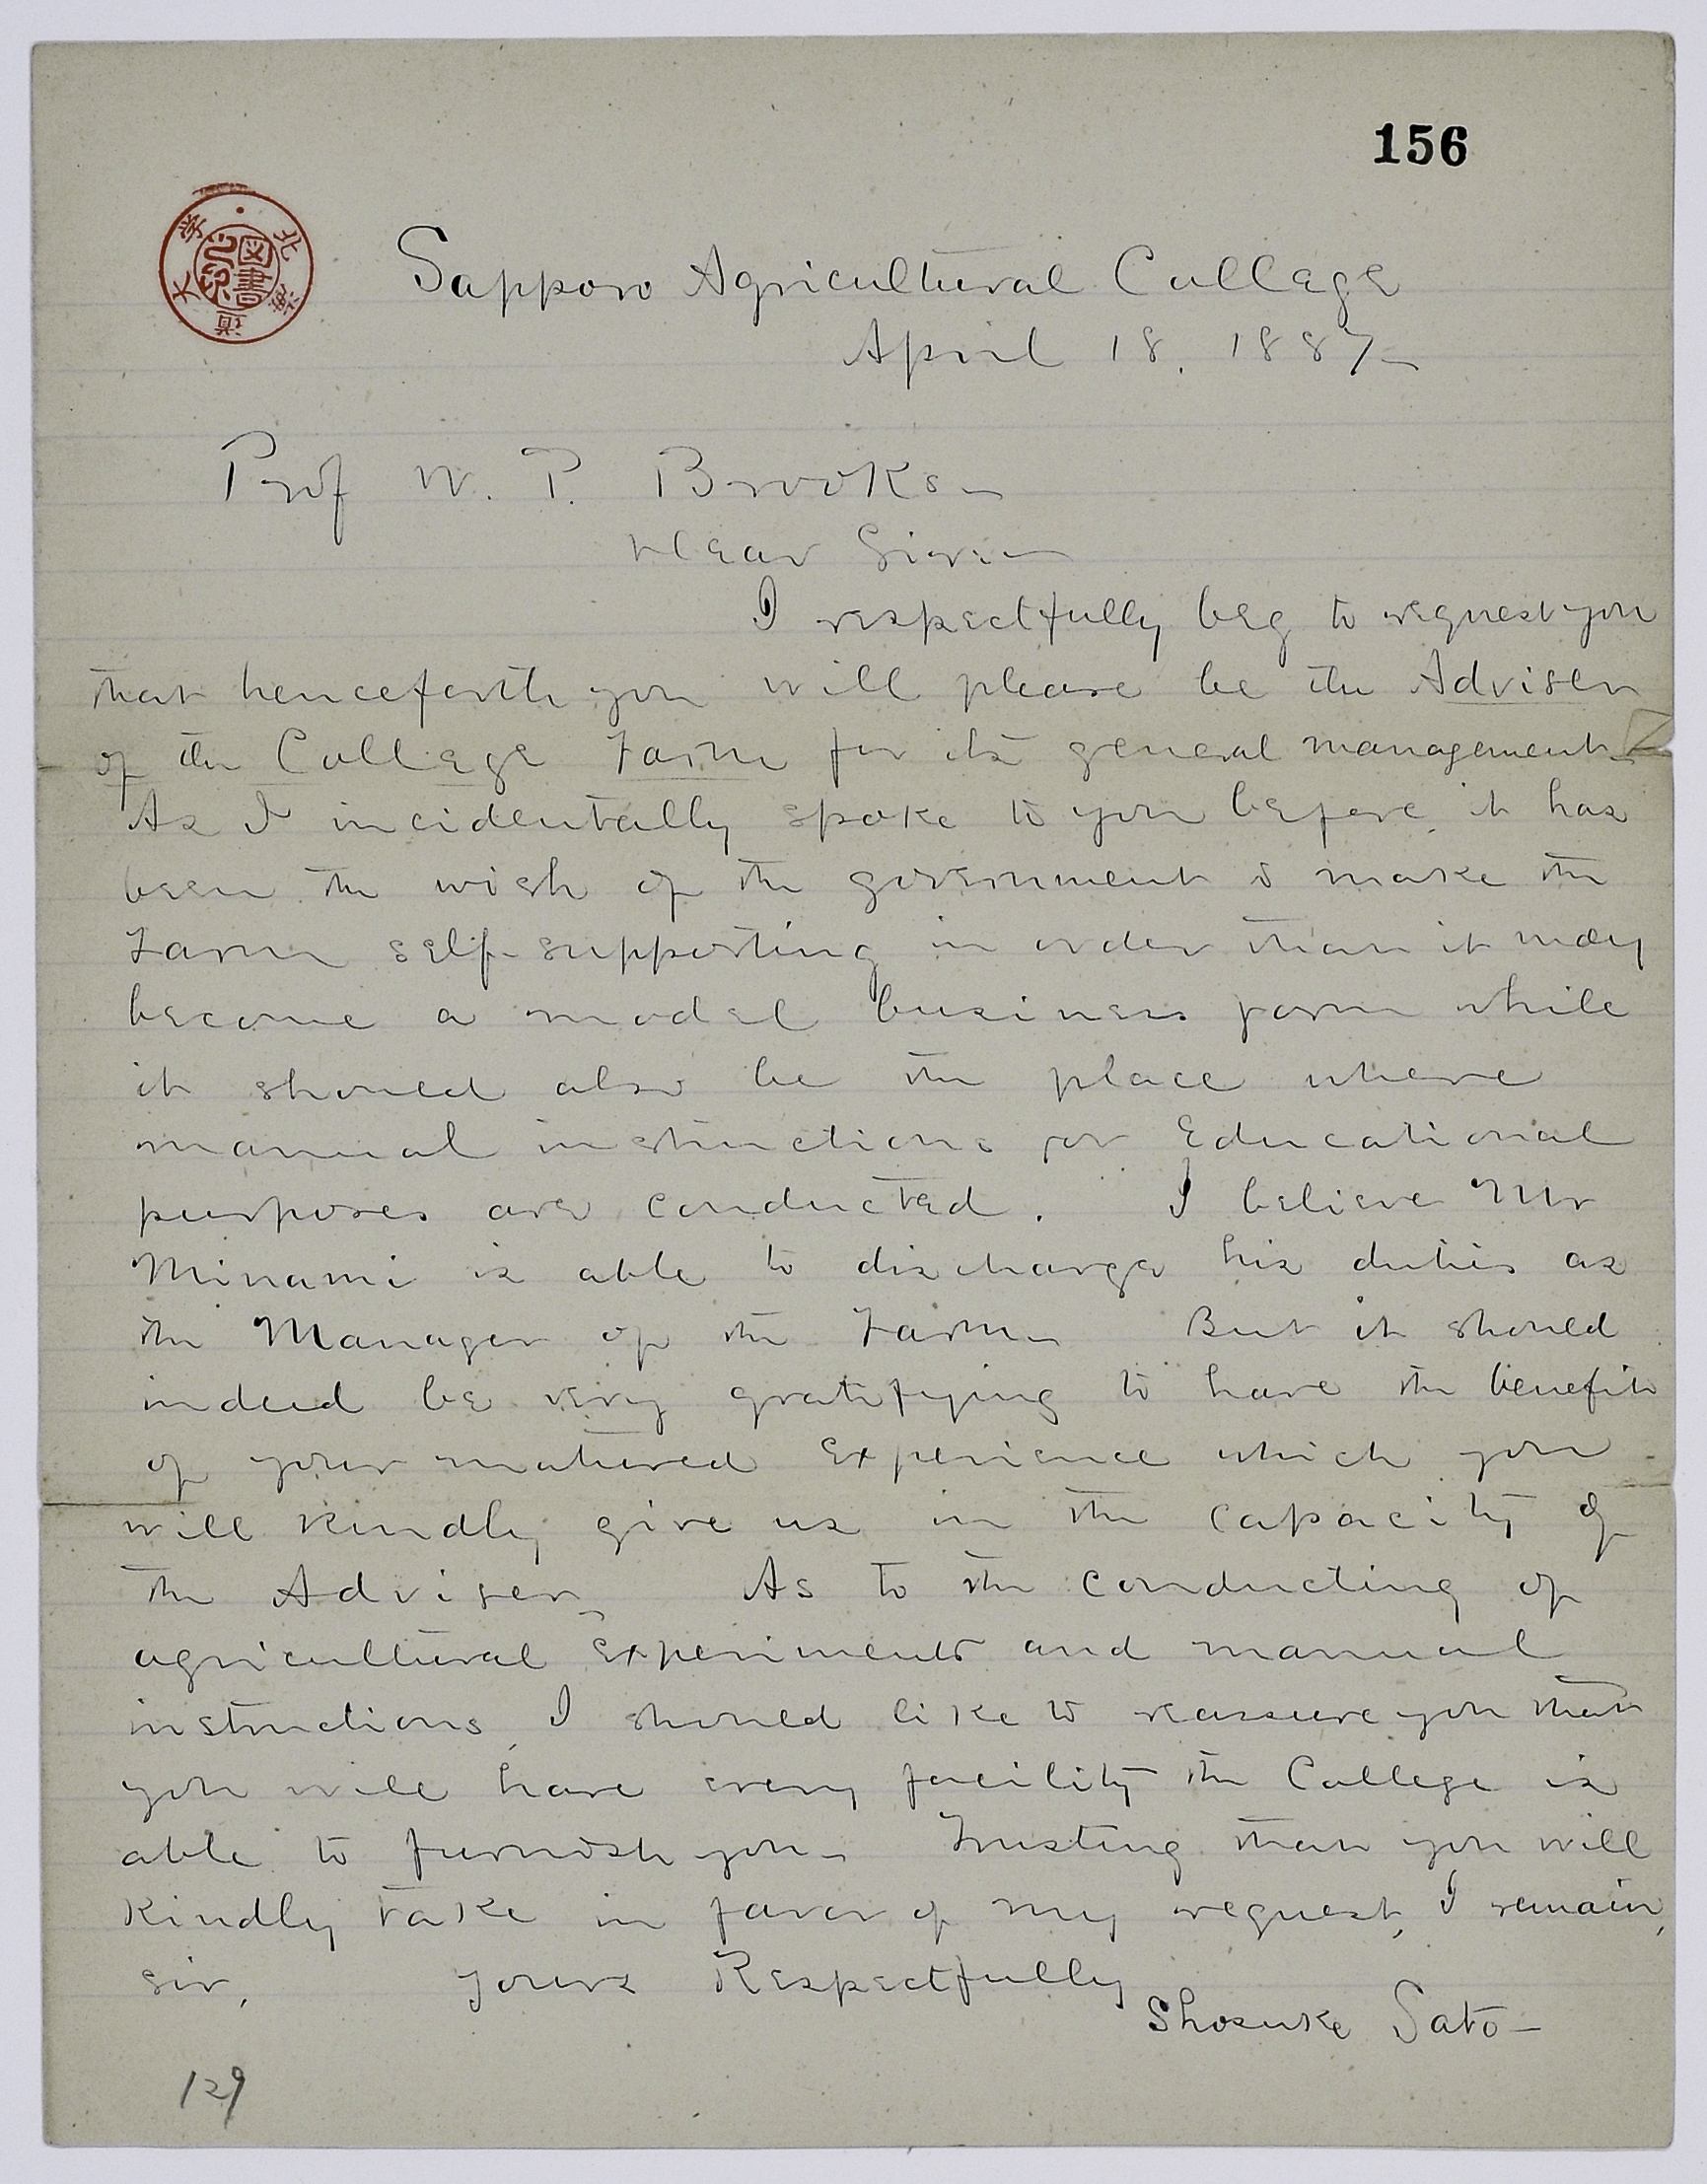 156
北海道大学
図書之印
Sapporo Agricultural College
April 18. 1887_
Prof W. P. Brooks_
Dear Sir:—
I respectfully beg to request you
that henceforth you will please be the Adviser
of the College Farm for its general management_
As I incidentally spoke to you before, it has
been the wish of the government to make the
Farm self-supporting in order that it may
become a model business farm while
it should also be the place where
manual instructions for Educational
purposes are conducted. I believe Mr
Minami is able to discharge his duties as
the Manager of the Farm_ But it should
indeed be very gratifying to have the benefit
of your matured experience which you
will kindly give us in the capacity of
the Adviser_ As to the conducting of
agricultural experiments and manual
instructions, I should like to reassure you that
you will have every facility the College is
able to furnish you_ Trusting that you will
kindly take in favor of my request, I remain,
sir, Yours Respectfully
Shosuke Sato—
129